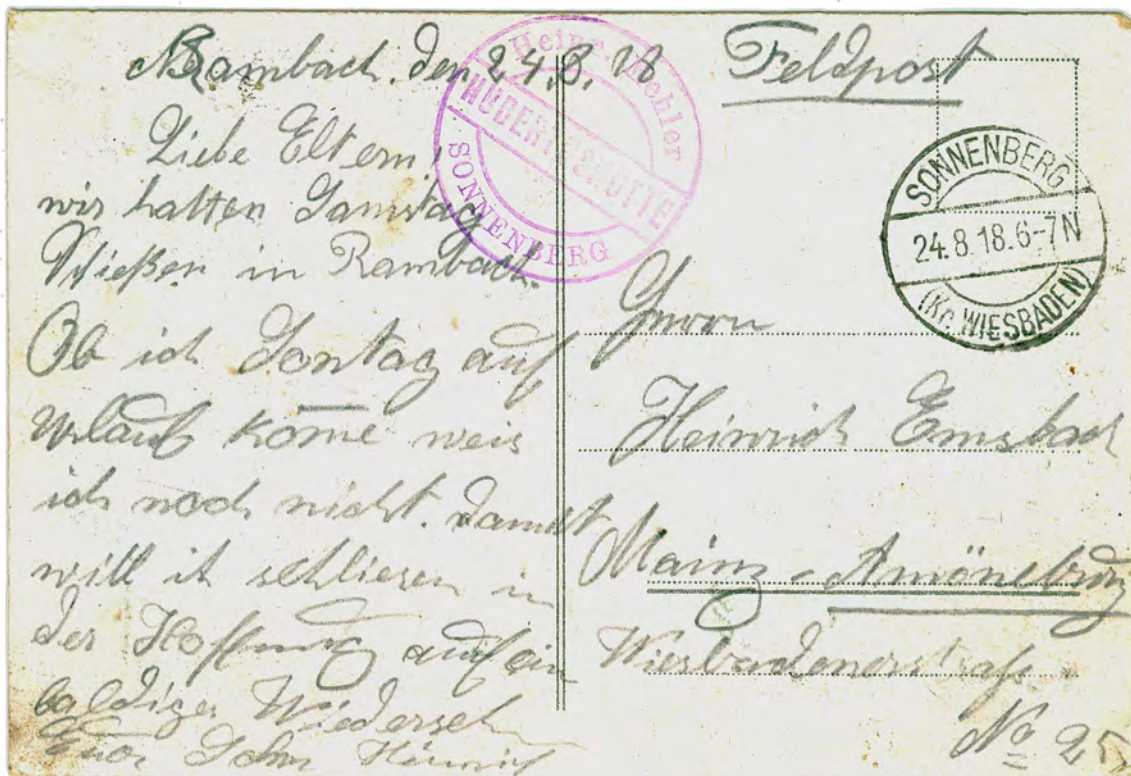 Rambach. den 24.8.18
Liebe Eltern!
wir hatten Samstag
Schießen in Rambach.
Ob ich Sontag auf
urlaub kom̄e weis
ich noch nicht. Damit
will ich schliesen in
der Hoffnung auf ein
baldiges Wiederseh
Euer Sohn Heinrich
Feldpost
Heinr.
HUBERTUSHÜTTE
SONNENBERG
SONNENBERG
24.8.18.6-7N
(Kr. WIESBADEN)
Herrn
Heinrich Emsbach
Mainz - Amöneburg
Wiesbadenerstraße
No 25